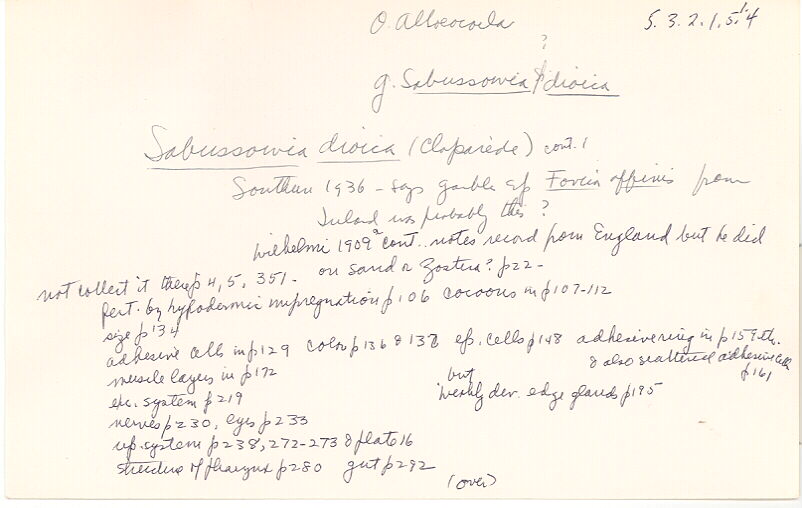 O. Alloeocoela 5.3.2.1.5.4
?
g. Sabussowia dioica
Sabussowia dioica (Claparède) cont. 1
Southern 1936 - says of Fovia affinis from
Ireland was probably this ?
Wilhelmi 1909a cont.. notes record from England but he did
not collect it there p 4, 5, 351. on sand or Zostera? p22-
fert. by hypodermic impregnation p 106 cocoons in p 107-112
size p 134
adhesive cells in p 129 color p 136 & 137 ep. cells p 148 adhesive ring in p 159
& also scattered adhesive cells
muscle layers in p 172 but p161
exc. system p 219 weakly dev. edge glands p 195
nerves p 230, eyes p 233
rep. system p 238, 272-273 & plate 16
structure of pharynx p 280 gut p 292
(over)